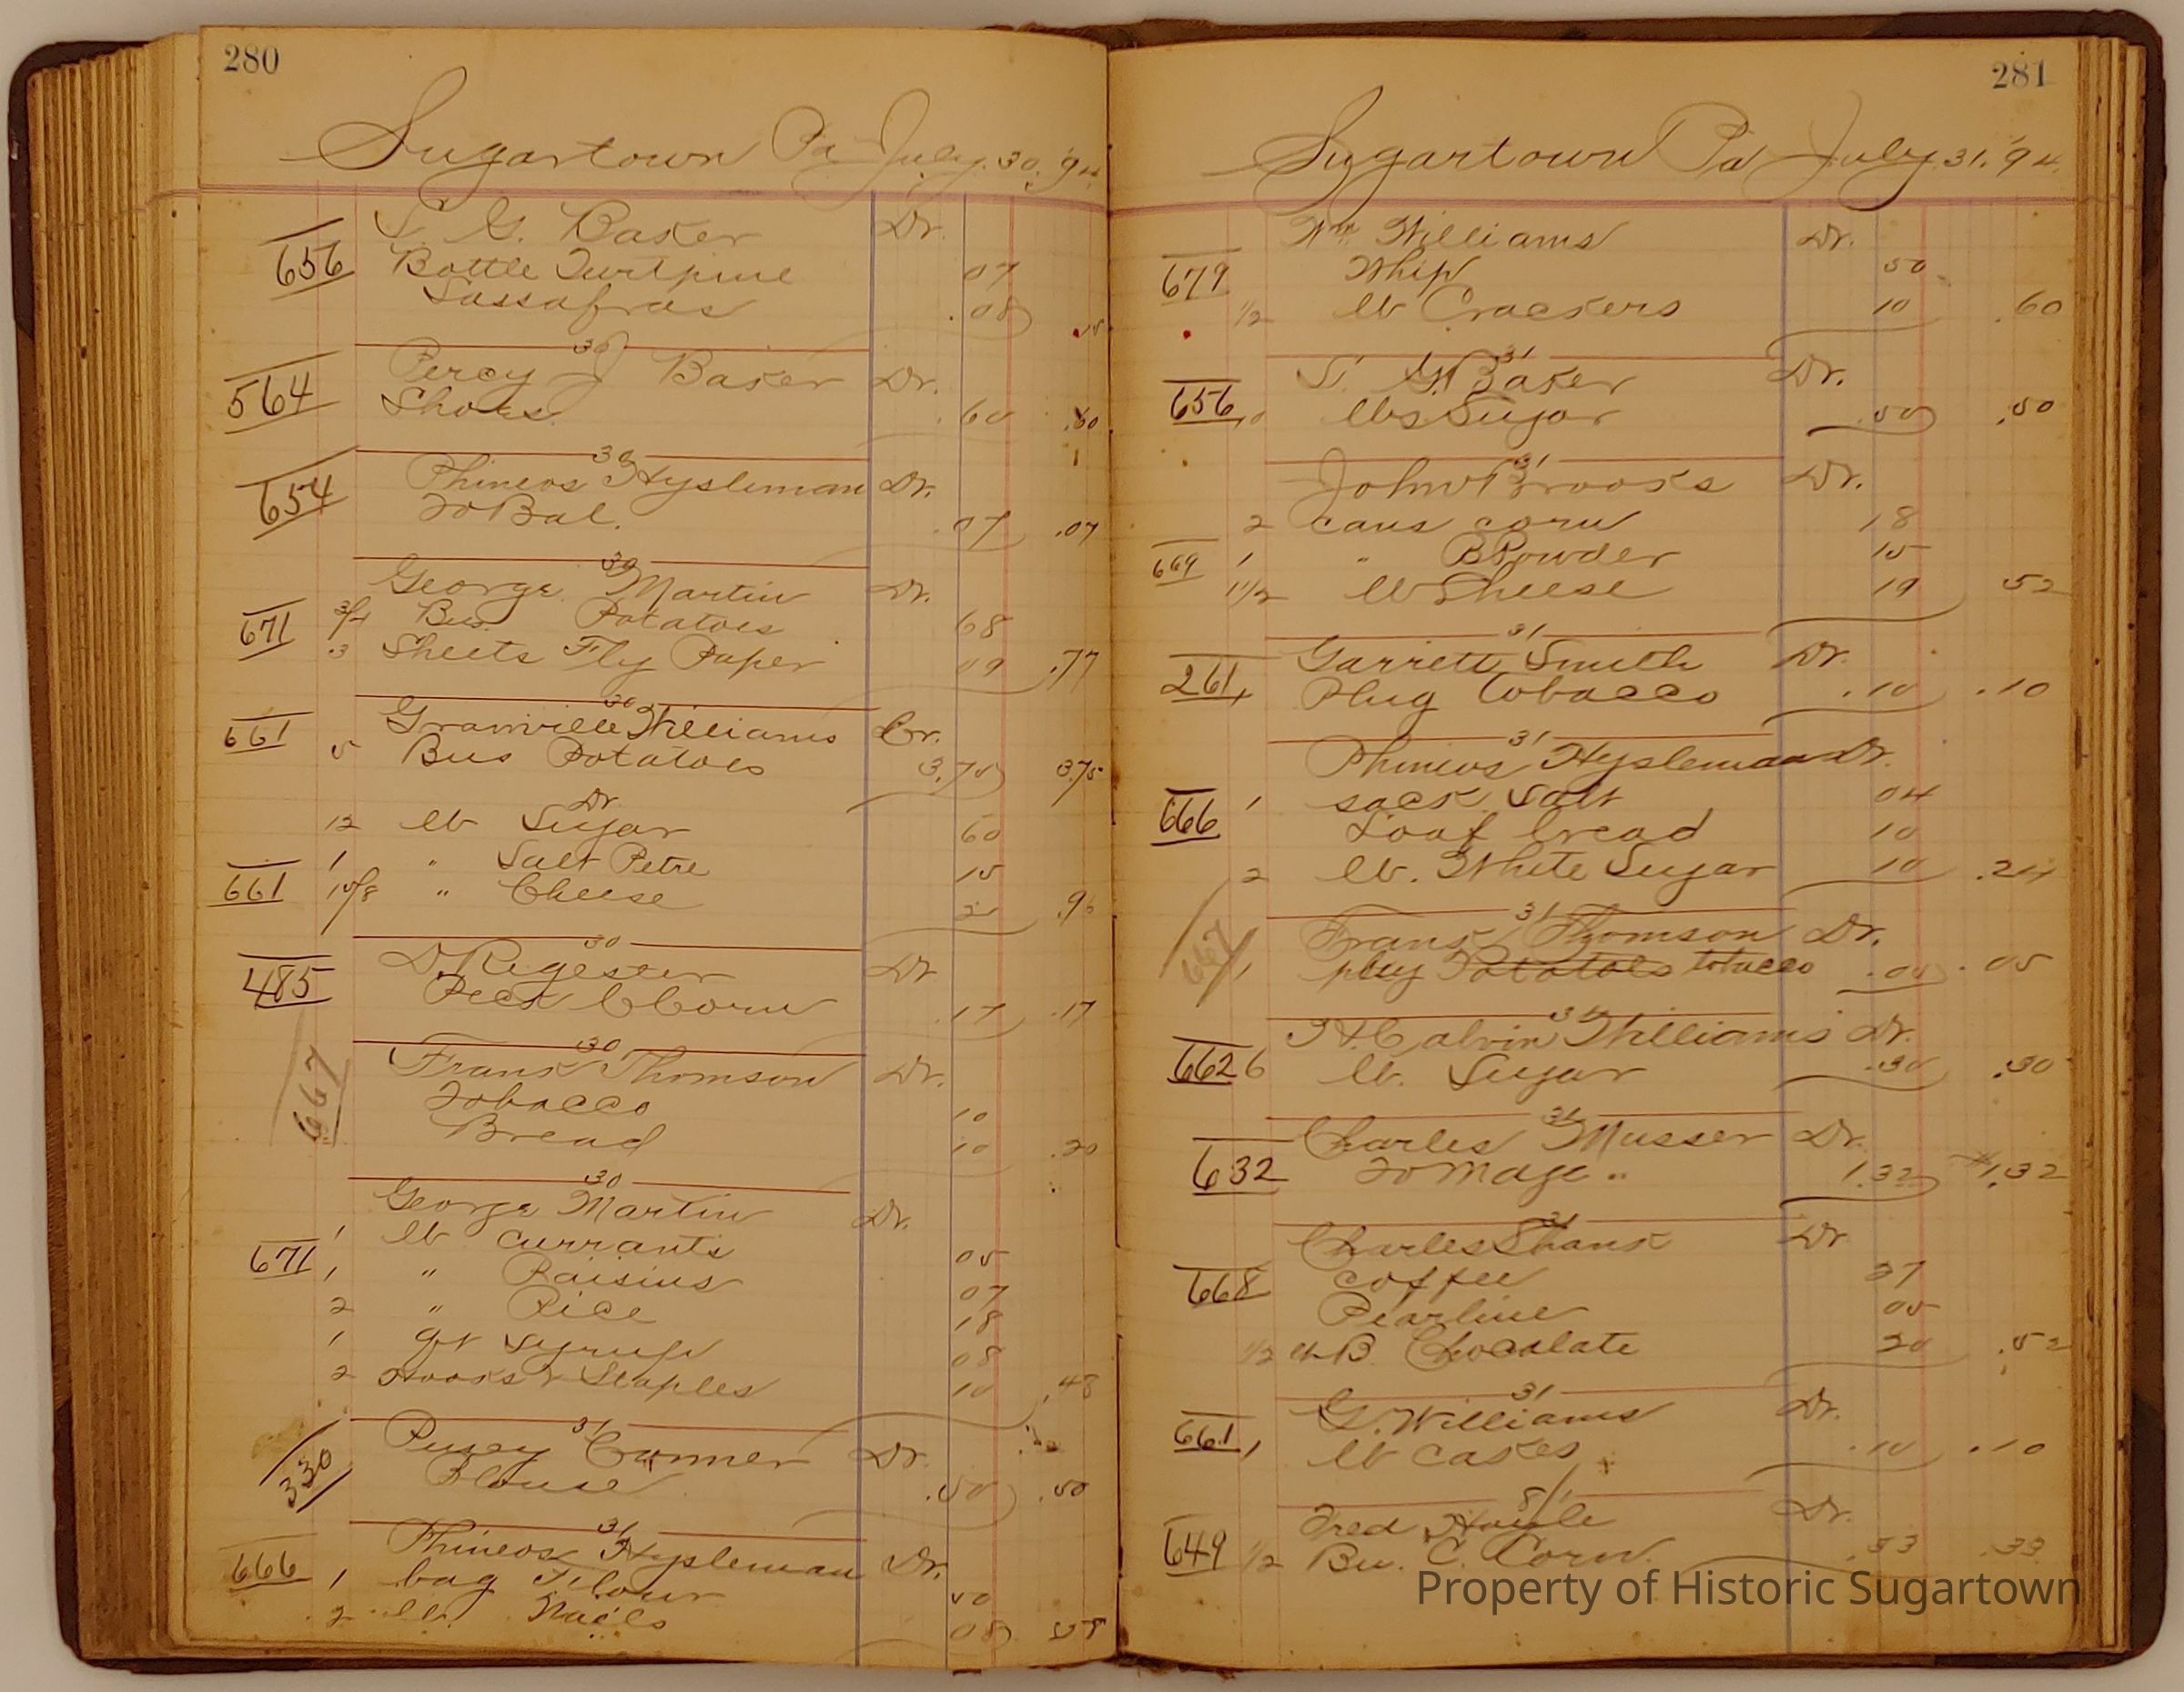 280
Sugartown Pa July. 30. '94
S. G. Baker Dr.
656 Bottle Turtpine 07
Sassafras .08 .15
30
Percy J Baker Dr.
564 Shoes .60 .60
30
Phineos Hysleman Dr.
654 To Bal. .07 .07
30
George Martin Dr.
671 3/4 Bus. Potatoes 68
3 Sheets Fly Paper 09 .77
30
Granville Williams Cr.
661 5 Bus Potatoes 3.75 3.75
Dr
12 lb Sugar 60
1 " Salt Petre 15
661 1 5/8 " Cheese 21 .96
30
D Regester Dr
485 Peck C Corn .17 .17
30
Frank Thomson Dr.
667 Tobacco 10
Bread 10 .20
30
George Martin Dr.
1 lb currants 05
671 1 " Raisins 07
2 " Rice 18
1 qt Syrup 08
2 Hooks & Staples 10 .48
31
Pusey Conner Dr.
330 Blouse .50 .50
31
Phineos Hysleman Dr.
666 1 bag Flour 50
2 lb Nails 08 .58
281
Sugartown Pa July 31. '94.
Wm Williams Dr.
679 Whip 50
1/2 lb Crackers 10 .60
31
S. G. Baker Dr.
656 10 lbs Sugar .50 .50
31
John Brooks Dr.
2 cans corn 18
669 1 " B Powder 15
1 1/2 lb Cheese 19 52
31
Garrett Smith Dr.
261 1 Plug tobacco .10 .10
31
Phineos Hysleman Dr.
666 1 sack Salt 04
Loaf bread 10
2 lb. White Sugar 10 .24
31
Frank Thomson Dr.
667 1 plug Potatoes tobacco .05 .05
31
H. Calvin Williams Dr.
662 6 lb. Sugar .30 .30
31
Charles Musser Dr.
632 To Mdge " 1.32 $1.32
31
Charles Shank Dr
668 coffee 27
Pearline 05
1/2 lb B. Chocolate 20 .52
31
G. Williams Dr.
661 1 lb cakes .10 .10
8/1
Fred Hoyle Dr.
649 1/2 Bu. C. Corn. .33 .33
Property of Historic Sugartown